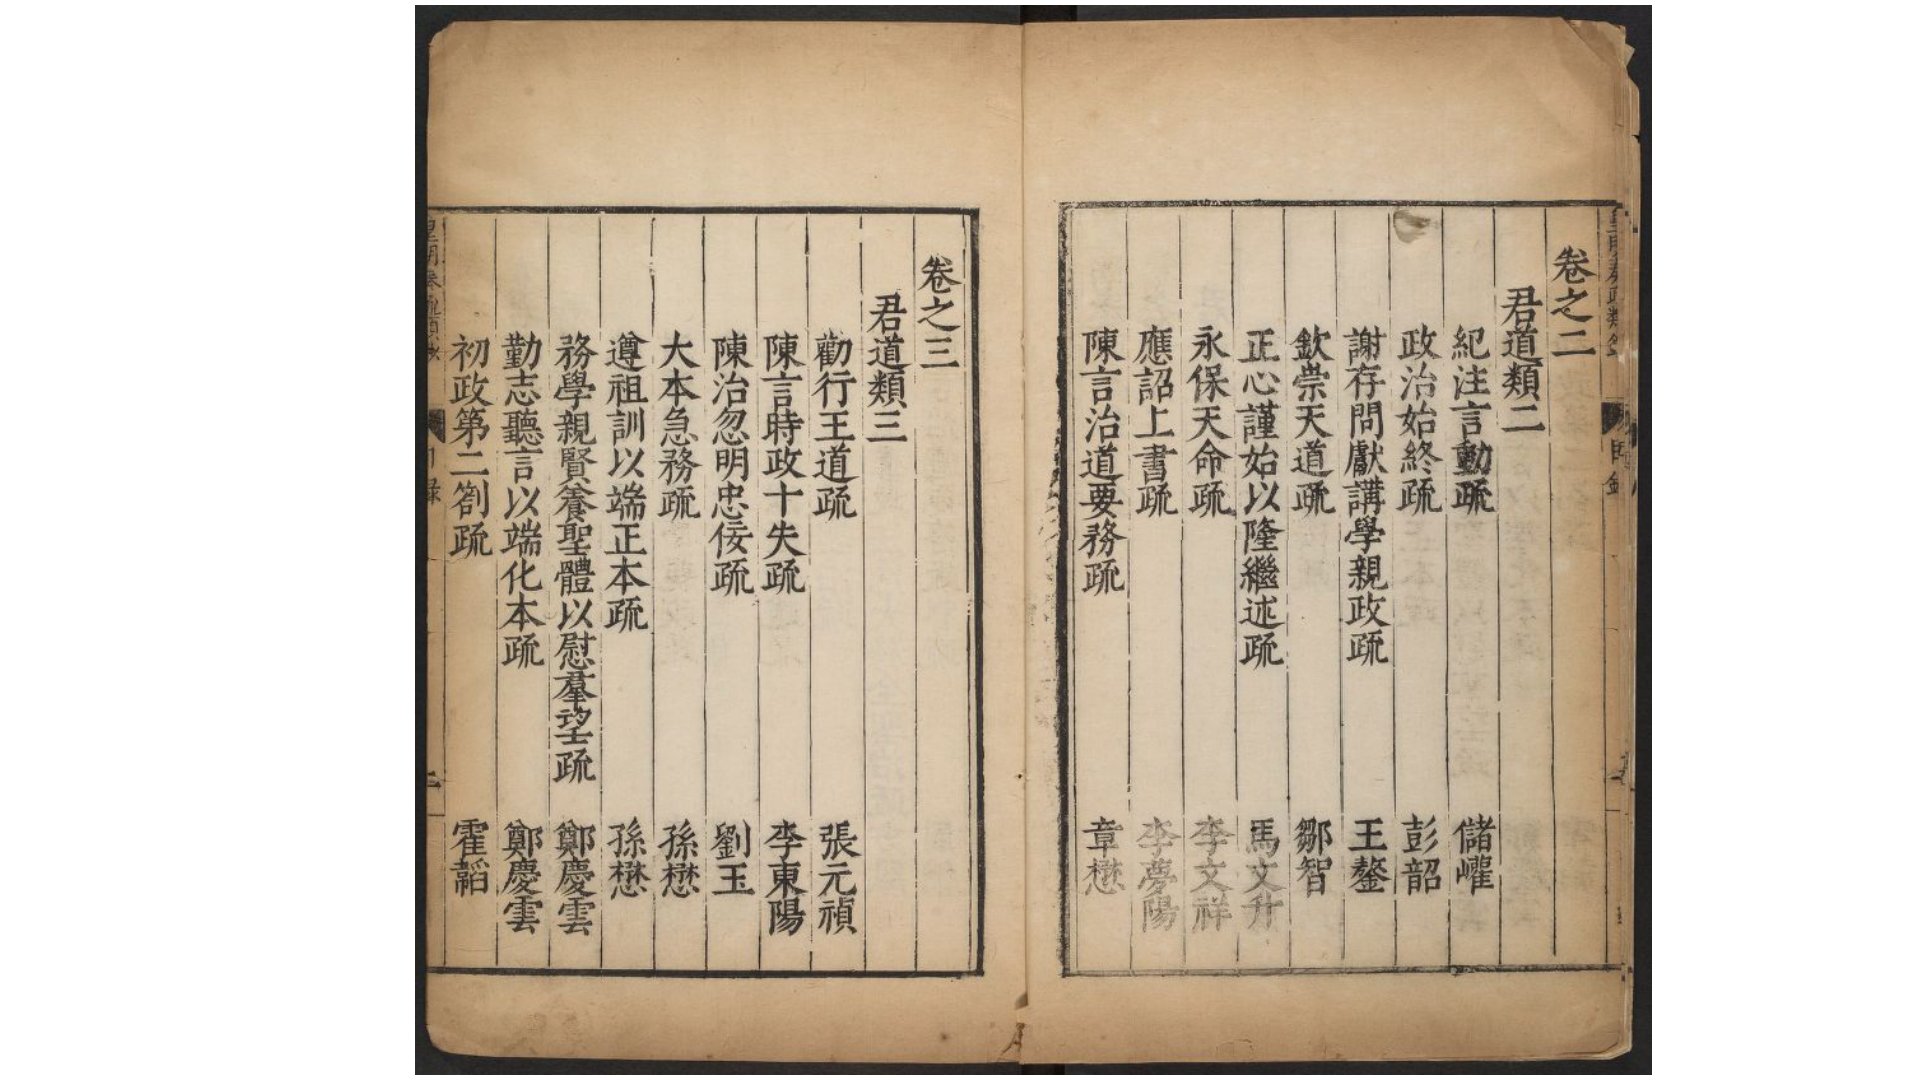 卷之二
君道類二
紀注言動疏 儲巏
政治始終疏 彭韶
謝存問獻講學親政疏 王鏊
欽崇天道疏 鄒智
正心謹始以隆繼述疏 馬文升
永保天命疏 李文祥
應詔上書疏 李夢陽
陳言治道要務疏 章懋
卷之三
君道類三
勸行王道疏 張元禎
陳言時政十失疏 李東陽
陳治忽明忠佞疏 劉玉
大本急務疏 孫懋
遵祖訓以端正本疏 孫懋
務學親賢養聖體以慰羣望疏 鄭慶雲
勤志聽言以端化本疏 鄭慶雲
初政第二劄疏 霍韜